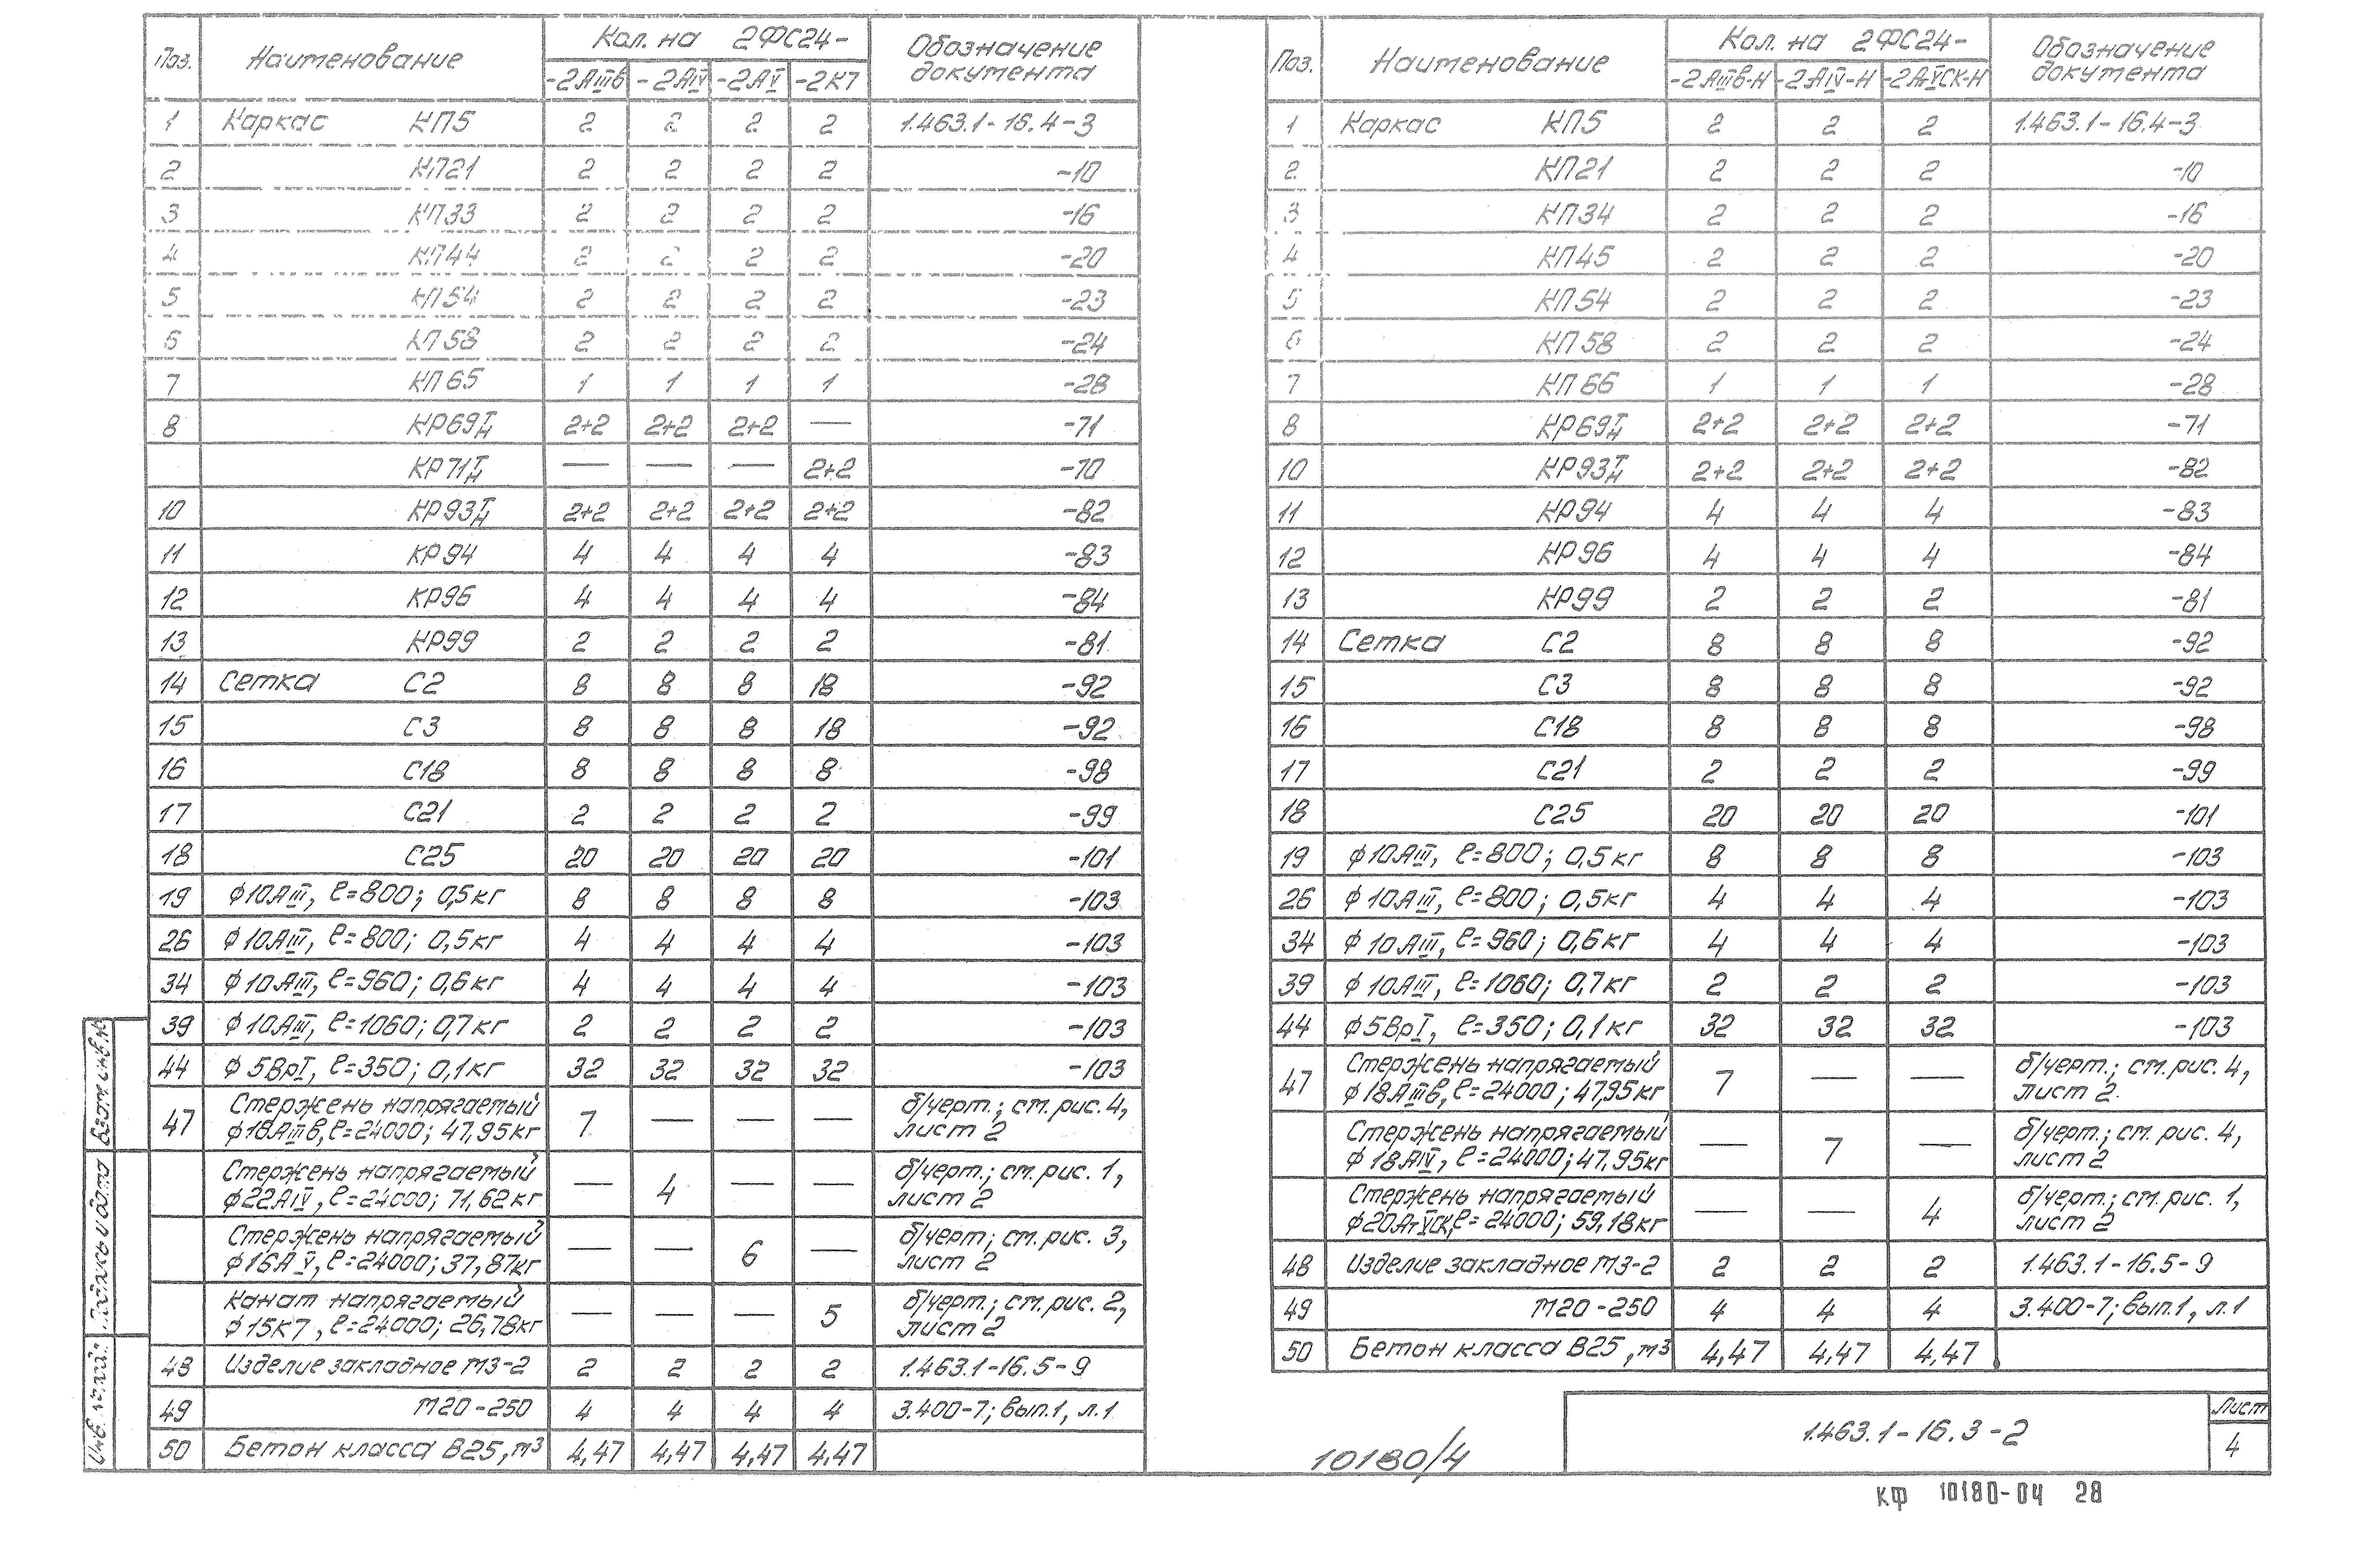 Поз. Наименование Кол. на 2ФС24- Обозначение документа
-2АIIIв -2АIV -2АV -2К7
1 Каркас КП5 2 2 2 2 1.463.1-16.4-3
2 КП21 2 2 2 2 -10
3 КП33 2 2 2 2 -16
4 КП44 2 2 2 2 -20
5 КП54 2 2 2 2 -23
6 КП58 2 2 2 2 -24
7 КП65 1 1 1 1 -28
8 КР69Т/Н 2+2 2+2 2+2 — -71
КР71Т/Н — — — 2+2 -70
10 КР93Т/Н 2+2 2+2 2+2 2+2 -82
11 КР94 4 4 4 4 -83
12 КР96 4 4 4 4 -84
13 КР99 2 2 2 2 -81
14 Сетка С2 8 8 8 18 -92
15 С3 8 8 8 18 -92
16 С18 8 8 8 8 -98
17 С21 2 2 2 2 -99
18 С25 20 20 20 20 -101
19 ф10АIII, ℓ=800; 0,5кг 8 8 8 8 -103
26 ф10АIII, ℓ=800; 0,5кг 4 4 4 4 -103
34 ф10АIII, ℓ=960; 0,6кг 4 4 4 4 -103
39 ф10АIII, ℓ=1060; 0,7кг 2 2 2 2 -103
44 ф5ВрI, ℓ=350; 0,1кг 32 32 32 32 -103
47 Стержень напрягаемый ф18АIIIв, ℓ=24000; 47,95кг 7 — — — б/черт.; см. рис. 4, лист 2
Стержень напрягаемый ф22АIV, ℓ=24000; 71,62кг — 4 — — б/черт.; см. рис. 1, лист 2
Стержень напрягаемый ф16АV, ℓ=24000; 37,87кг — — 6 — б/черт; см. рис. 3, лист 2
Канат напрягаемый ф15К7, ℓ=24000; 26,78кг — — — 5 б/черт.; см. рис. 2, лист 2
48 Изделие закладное М3-2 2 2 2 2 1.463.1-16.5-9
49 М20-250 4 4 4 4 3.400-7; вып.1, л.1
50 Бетон класса В25, м³ 4,47 4,47 4,47 4,47
Поз. Наименование Кол. на 2ФС24- Обозначение документа
-2АIIIв-Н -2АIV-Н -2АтVСК-Н
1 Каркас КП5 2 2 2 1.463.1-16.4-3
2 КП21 2 2 2 -10
3 КП34 2 2 2 -16
4 КП45 2 2 2 -20
5 КП54 2 2 2 -23
6 КП58 2 2 2 -24
7 КП66 1 1 1 -28
8 КР69Т/Н 2+2 2+2 2+2 -71
10 КР93Т/Н 2+2 2+2 2+2 -82
11 КР94 4 4 4 -83
12 КР96 4 4 4 -84
13 КР99 2 2 2 -81
14 Сетка С2 8 8 8 -92
15 С3 8 8 8 -92
16 С18 8 8 8 -98
17 С21 2 2 2 -99
18 С25 20 20 20 -101
19 ф10АIII, ℓ=800; 0,5кг 8 8 8 -103
26 ф10АIII, ℓ=800; 0,5кг 4 4 4 -103
34 ф10АIII, ℓ=960; 0,6кг 4 4 4 -103
39 ф10АIII, ℓ=1060; 0,7кг 2 2 2 -103
44 ф5ВрI, ℓ=350; 0,1кг 32 32 32 -103
47 Стержень напрягаемый ф18АIIIв, ℓ=24000; 47,95кг 7 — — б/черт.; см. рис. 4, лист 2
Стержень напрягаемый ф18АIV, ℓ=24000; 47,95кг — 7 — б/черт.; см. рис. 4, лист 2
Стержень напрягаемый ф20АтVСК, ℓ=24000; 59,18кг — — 4 б/черт.; см. рис. 1, лист 2
48 Изделие закладное М3-2 2 2 2 1.463.1-16.5-9
49 М20-250 4 4 4 3.400-7; вып.1, л.1
50 Бетон класса В25, м³ 4,47 4,47 4,47
Взам инв.№
Подпись и дата
Инв. № подл.
10180/4
1.463.1-16.3-2
Лист
4
КФ 10180-04 28